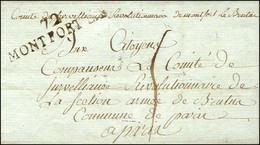 Comité de Surveillance Révolutionnaire de montfort le Brutus
72
MONTFORT
Aux Citoyens
Composant le Comité de
Surveillance Révolutionnaire de
La Section armée de Brutus
Commune de paris
a paris